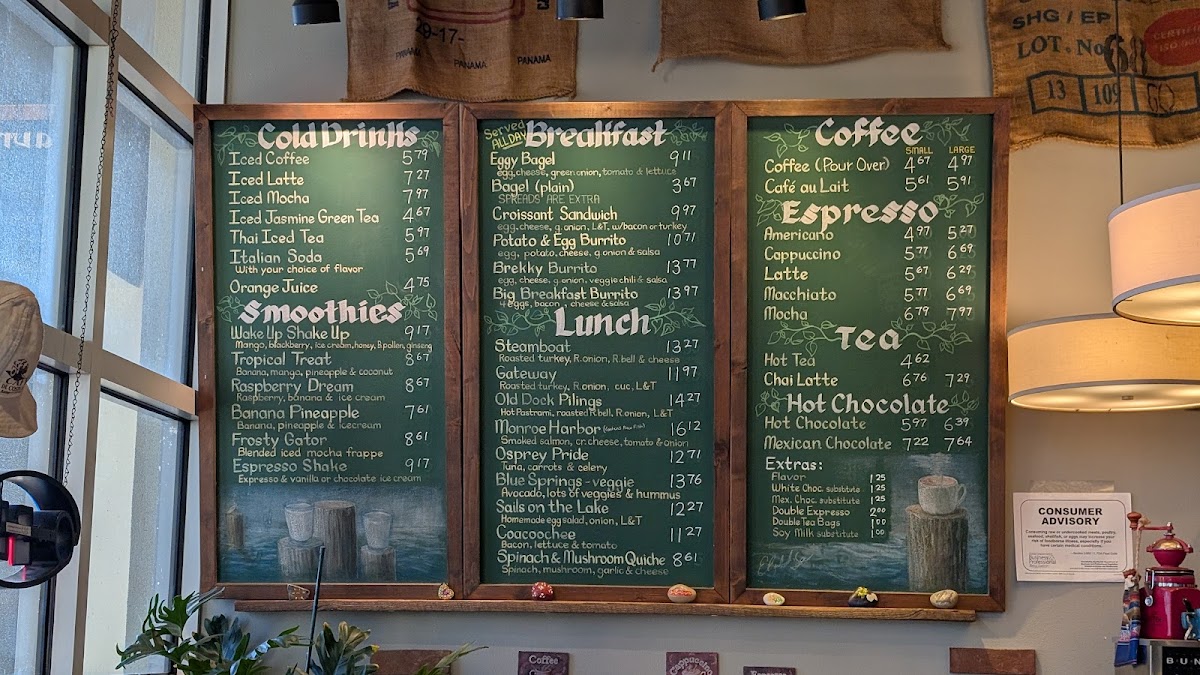 29-17-
PANAMA
PANAMA
PANAMA
SHG / EP
LOT. No
13 109
Cold Drinks
Iced Coffee 5.79
Iced Latte 7.27
Iced Mocha 7.97
Iced Jasmine Green Tea 4.67
Thai Iced Tea 5.97
Italian Soda 5.69
With your choice of flavor
Orange Juice 4.75
Smoothies
Wake Up Shake Up 9.17
Mango, blackberry, ice cream, honey, B.pollen, ginseng
Tropical Treat 8.67
Banana, mango, pineapple & coconut
Raspberry Dream 8.67
Raspberry, banana & ice cream
Banana Pineapple 7.61
Banana, pineapple & icecream
Frosty Gator 8.61
Blended iced mocha frappe
Espresso Shake 9.17
Expresso & vanilla or chocolate ice cream
Served ALL DAY
Breakfast
Eggy Bagel 9.11
egg, cheese, green onion, tomato & lettuce
Bagel (plain) 3.67
SPREADS ARE EXTRA
Croissant Sandwich 9.97
egg, cheese, g.onion, L&T, w/bacon or turkey
Potato & Egg Burrito 10.71
egg, potato, cheese, g.onion & salsa
Brekky Burrito 13.77
egg, cheese, g.onion, veggie chili & salsa
Big Breakfast Burrito 13.97
4 eggs, bacon, cheese & salsa
Lunch
Steamboat 13.27
Roasted turkey, R.onion, R.bell & cheese
Gateway 11.97
Roasted turkey, R.onion, cuc, L&T
Old Dock Pilings 14.27
Hot Pastrami, roasted R.bell, R.onion, L&T
Monroe Harbor 16.12
Smoked salmon, cr.cheese, tomato & onion
Osprey Pride 12.71
Tuna, carrots & celery
Blue Springs - veggie 13.76
Avocado, lots of veggies & hummus
Sails on the Lake 12.27
Homemade egg salad, onion, L&T
Coacoochee 11.27
Bacon, lettuce & tomato
Spinach & Mushroom Quiche 8.61
Spinach, mushroom, garlic & cheese
Coffee
SMALL LARGE
Coffee (Pour Over) 4.67 4.97
Café au Lait 5.61 5.91
Espresso
Americano 4.97 5.27
Cappuccino 5.77 6.69
Latte 5.67 6.29
Macchiato 5.77 6.69
Mocha 6.79 7.97
Tea
Hot Tea 4.62
Chai Latte 6.76 7.29
Hot Chocolate
Hot Chocolate 5.97 6.39
Mexican Chocolate 7.22 7.64
Extras:
Flavor 1.25
White Choc. substitute 1.25
Mex. Choc. substitute 1.25
Double Expresso 2.00
Double Tea Bags 1.00
Soy Milk substitute 1.00
CONSUMER
ADVISORY
Consuming raw or undercooked meats, poultry,
seafood, shellfish, or eggs may increase your
risk of foodborne illness, especially if you
have certain medical conditions.
Coffee
Cappuccino
BUN